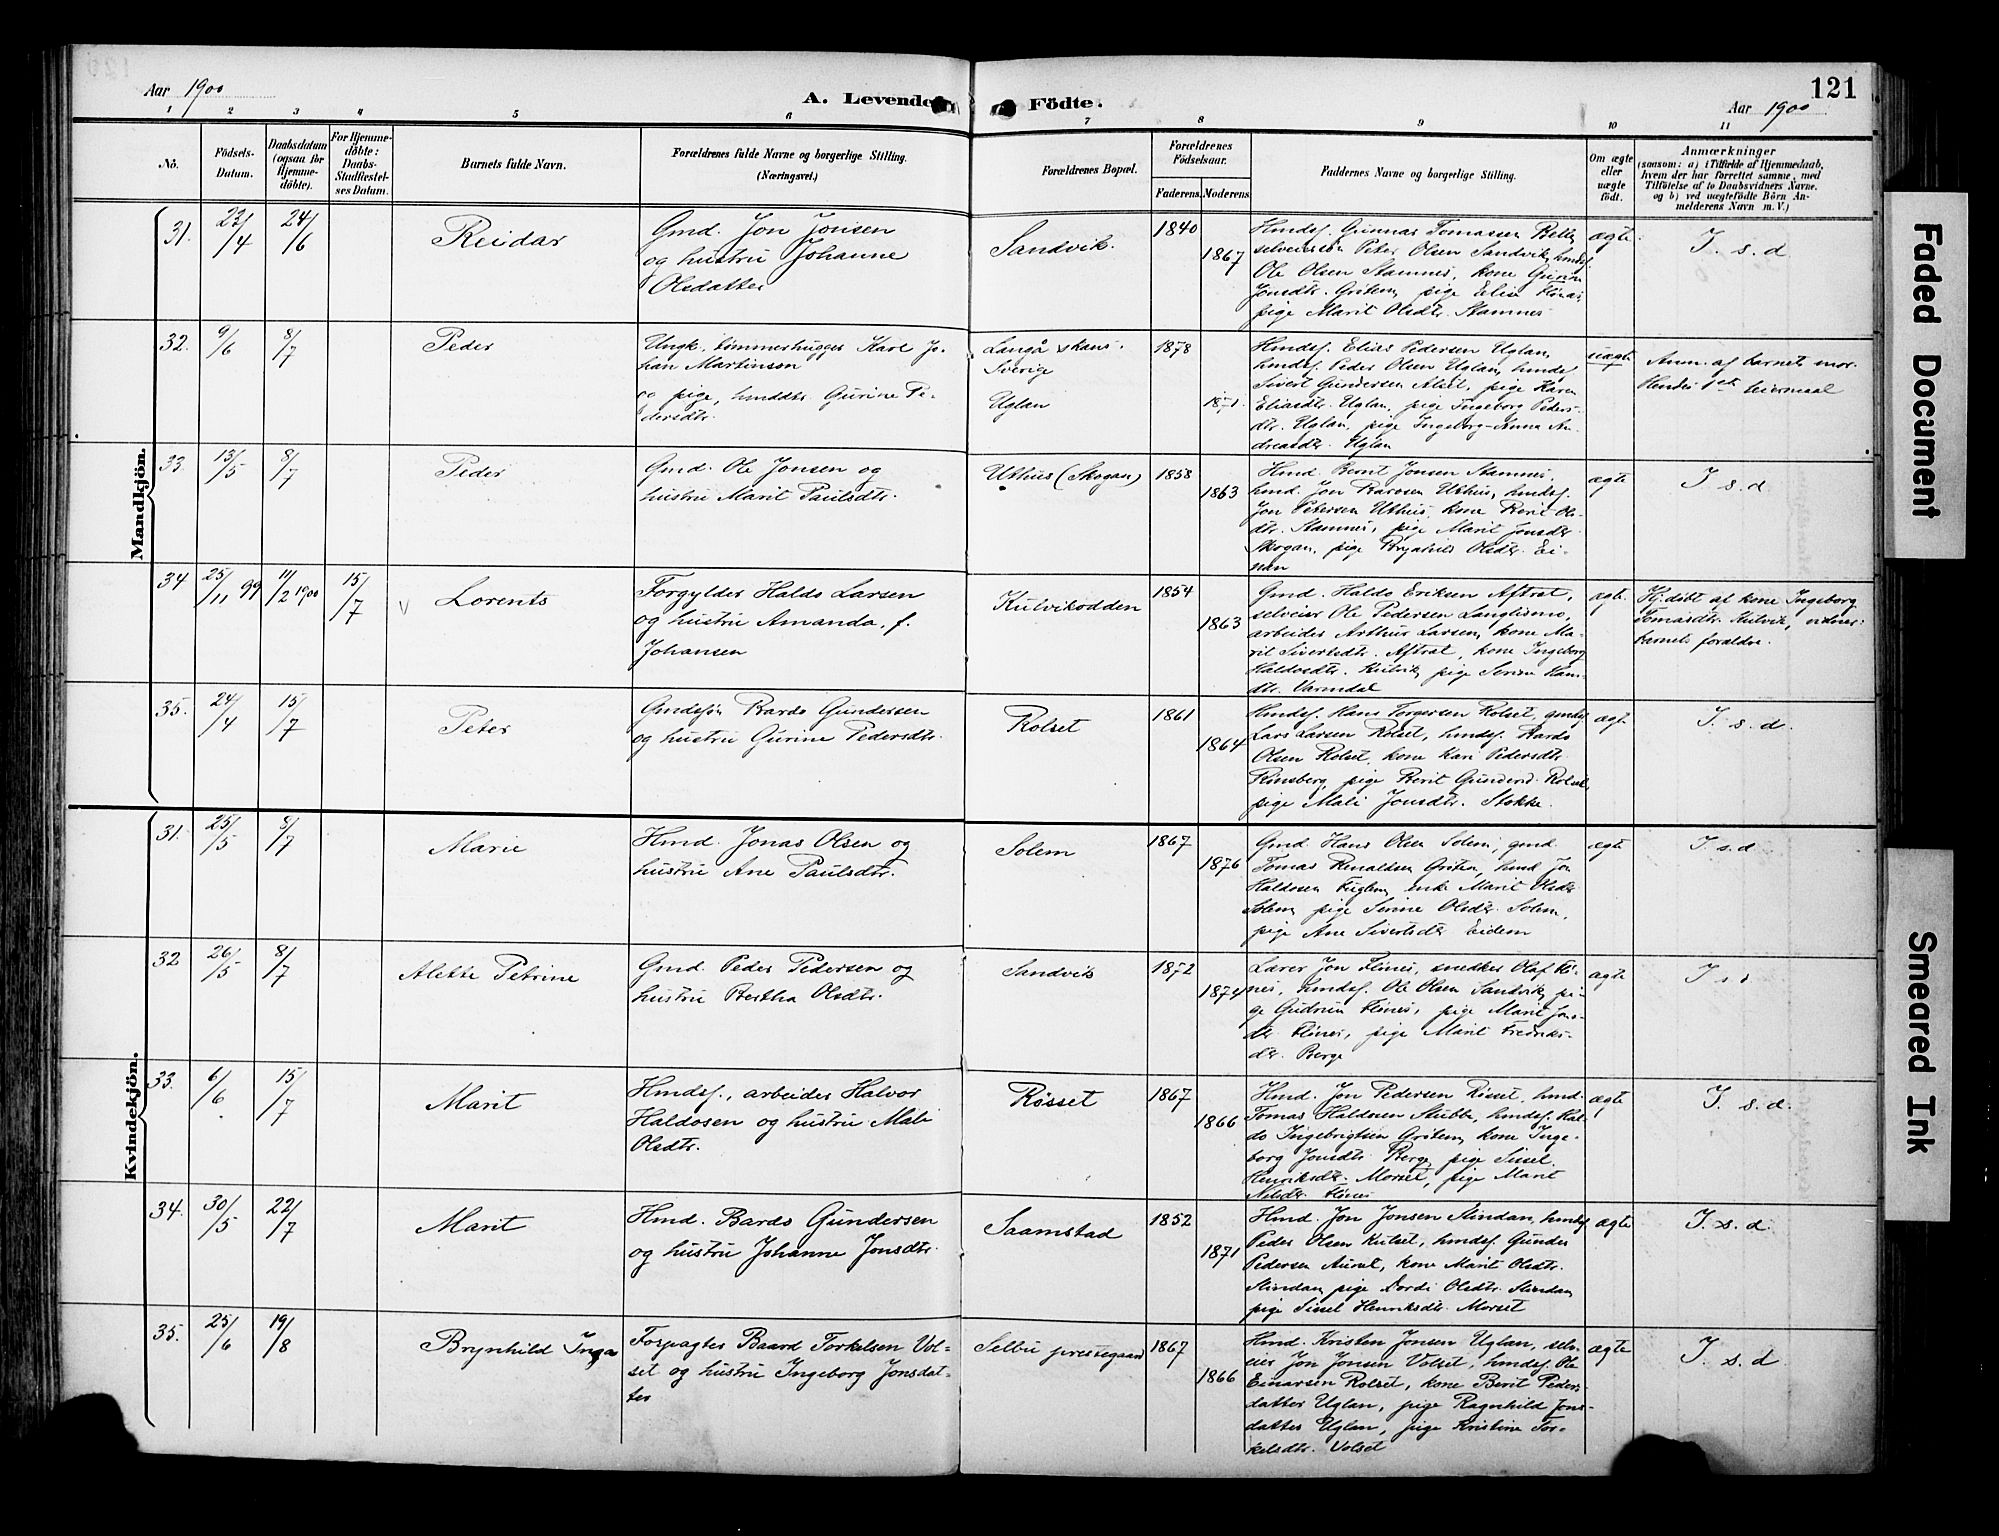 Aar 1900
A. Levende Födte.
121
Aar 1900
1 2 3 4 5 6 7 8 9 10 11
No.
Födsels-Datum.
Daabsdatum (ogsaa for Hjemme-döbte).
For Hjemme-döbte: Daabs-Stadfæstelses Datum.
Barnets fulde Navn.
Forældrenes fulde Navne og borgerlige Stilling.
(Næringsvei.)
Forældrenes Bopæl.
Forældrenes Födselsaar.
Faderens. Moderens.
Faddernes Navne og borgerlige Stilling.
Om ægte eller uægte födt.
Anmærkninger
(saasom: a) i Tilfælde af Hjemmedaab, hvem der har forrettet samme, med Tilföielse af to Daabsvidners Navne, og b) ved uægtefödte Börn Anmelderens Navn m. V.)
Mandkjön.
31. 23/4 24/6 Reidar
Gmd. Jon Jonsen
og hustru Johanne
Olsdatter
Sandvik. 1840 1867
Hmdsf. Gunnar Tomassen Rolte
selveiersön Peter Olsen Sandvik, hmdsf
Ole Olsen Stamnes, kone Guru
Jonsdtr. Gritem, pige Elise Flönæs
pige Marit Olsdtr. Stamnes
ægte. I. s. d
32. 9/6 8/7 Peder
Ungk. tömmerhugger Karl Jo-
han Martinson
og pige, hmddtr. Gurine Pe-
dersdtr.
Langå skans.
Sverige
Uglan
1878 1871.
Hmdsf. Elias Pedersen Uglan,
hmdsf. Peder Olsen Uglan, hmds
Sivert Gundersen Alset, pige Karen
Eliasdtr. Uglan, pige Ingeborg Peders-
dtr. Uglan, pige Ingeborg-Anna An-
dreasdtr. Uglan
uægte
Anm. af barnets mor.
Hendes 1ste leiermaal
33. 13/5 8/7 Peder
Gmd. Ole Jonsen og
hustru Marit Paulsdtr.
Uthus (Skogan) 1858 1863
Hmd. Bernt Jonsen Stamnes,
hmd. Jon Bardsen Uthus, hmdsf.
Jon Petersen Uthus, kone Berit Ols-
dtr. Stamnes, pige Marit Jonsdtr
Skogan, pige Olsdtr. Ei-
nan
ægte I. s. d.
34 25/11 99 11/2 1900 15/7 Lorents
Forgylder Haldo Larsen
og hustru Amanda, f.
Johansen
Kulvikodden 1854 1863
Gmd. Haldo Eriksen Aftret,
selveier Ole Pedersen Langlismo,
arbeider Arthur Larsen, kone Ma-
rit Sivertsdtr. Aftret, kone Ingeborg
Haldosdtr. Kulvik, pige Serine Hans-
dtr. Varmdal
ægte.
Hj.døbt af kone Ingeborg
Tomasdtr. Kulvik, vidner:
barnets forældre.
35. 24/4 15/7 Peter
Gmdssøn Bardo Gundersen
og hustru Gurine Pedersdtr.
Rolset 1861 1864
Hmdsf. Hans Torgersen Rolset, gmdsf
Lars Larsen Rolset, hmdsf. Bardo
Olsen Rolset, kone Kari Pedersdtr
Rönsberg, pige Berit Gundersd. Rolset,
pige Mali Jonsdtr. Stokke.
ægt. I. s. d.
Kvindekjön.
31. 25/5 8/7 Marie
Hmd. Jonas Olsen og
hustru Ane Paulsdtr.
Solem 1867 1876
Gmd. Hans Olsen Solem, gmd.
Tomas Renaldsen Gritem, hmd Jon
Haldosen Fuglem, enke Marit Olsdtr
Solem, pige Serine Olsdtr. Solem,
pige Ane Sivertsdtr Eidem
ægte I. s. d
32 26/5 8/7 Alette Petrine
Gmd. Peder Pedersen og
hustru Bertha Olsdtr.
Sandvik 1872 1874
Lærer Jon Flönes, snedker Olaf Flö-
nes, hmdsf. Ole Olsen Sandvik, pi-
ge Gudrun Flönes, pige Marit Jons-
dtr. Flönes, pige Marit Fredriks-
dtr. Berge
ægte I s d
33. 6/6 15/7 Marit
Hmdsf., arbeider Halvor
Haldosen og hustru Mali
Olsdtr.
Røsset 1867 1866
Hmd. Jon Pedersen Røsset, hmd.
Tomas Haldosen Stubbe, hmdsf. Hal-
do Ingebrigtsen Gritem, kone Inge-
borg Jonsdtr. Berge, pige Sissel
Henriksdtr. Morset, pige Marit
Nilsdtr. Flönes
ægte I. s. d.
34. 30/5 22/7 Marit
Hmd. Bardo Gundersen
og hustru Johanne Jonsdtr.
Saamstad 1852 1871
Hmd. Jon Jonsen Stindan, hmdsf
Peder Olsen Kulset, hmdsf. Gunder
Pedersen Aunet, kone Marit Olsdtr.
Stindan, pige Dordi Olsdtr. Stindan,
pige Sissel Henriksdtr. Morset
ægte I. s. d.
35. 25/6 19/8 Brynhild Inga
Forpagter Baard Torkelsen Vol-
set og hustru Ingeborg Jonsdat-
ter
Selbu prestegaard 1867 1866
Hmd. Kristen Jonsen Uglan, selv-
eier Jon Jonsen Volset, hmdsf. Ole
Einarsen Rolset, kone Berit Peders-
datter Uglan, pige Ragnhild Jons-
datter Uglan, pige Kristine Tor-
kelsdtr. Volset
ægte I. s. d.
Faded Document
Smeared Ink